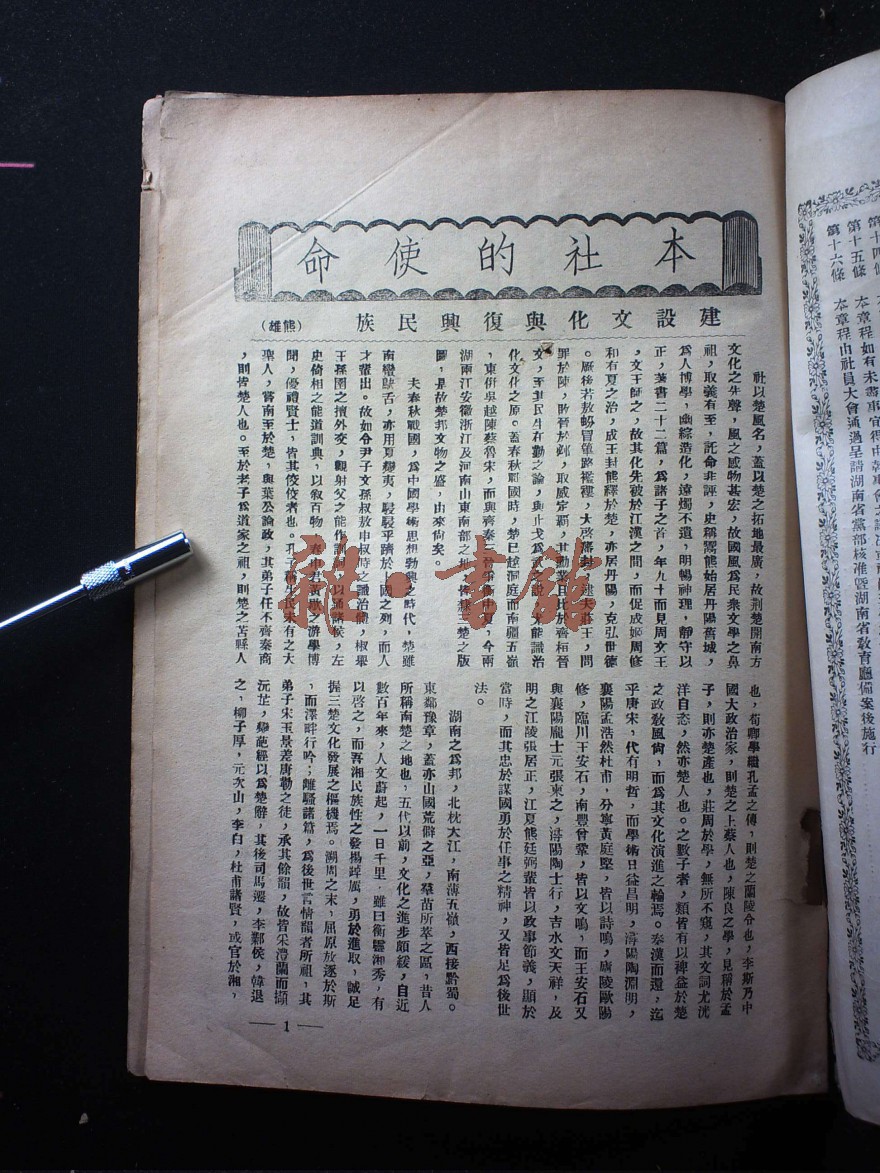 本社的使命
建設文化與復興民族 (熊雄)
社以楚風名，蓋以楚之拓地最廣，故荆楚開南方
文化之先聲，風之感物甚宏，故國風爲民衆文學之鼻
祖，取義有至，託命非誣，史稱鬻熊始居丹陽舊城，
爲人博學，幽綜造化，遠燭不遺，明暢神理，靜守以
正，著書二十二篇，爲諸子之首，年九十而見周文王
，文王師之，故其化先被於江漢之間，而促成姬周修
和有夏之治，成王封熊繹於楚，亦居丹陽，克弘世德
。厥後若敖蚡冒篳路襤褸，大啓
莊王，問
罪於陳，敗晉於邲，取威定霸，其勳業自比於齊桓晉
文，至其民生在勤之論，與止戈爲武之說，
化文化之原。蓋春秋戰國時，楚已越洞庭而南疆五嶺
，東併吳越陳蔡魯宋，而與齊秦
今兩
湖兩江安徽浙江及河南山東南部之地，皆隸三楚之版
圖，是故楚邦文物之盛，由來尙矣。
夫春秋戰國，爲中國學術思想勃興之時代，楚雖
南蠻鴃舌，亦用夏變夷，駸駸乎躋於上國之列，而人
才輩出。故如令尹子文孫叔敖申叔時之識治體，椒舉
王孫圉之擅外交，觀射父之能作訓詞，以
諸侯，左
史倚相之能道訓典，以敘百物，春申君黃歇之游學博
聞，優禮賢士，皆其佼佼者也。孔子稱生民未有之大
聖人，嘗南至於楚，與葉公論政，其弟子任不齊秦商
，則皆楚人也。至於老子爲道家之祖，則楚之苦縣人
也，荀卿學繼孔孟之傳，則楚之蘭陵令也，李斯乃中
國大政治家，則楚之上蔡人也，陳良之學，見稱於孟
子，則亦楚產也，莊周於學，無所不窺，其文詞尤洸
洋自恣，然亦楚人也。之數子者，類皆有以裨益於楚
之政教風尙，而爲其文化演進之輪焉。秦漢而還，迄
乎唐宋，代有明哲，而學術日益昌明，潯陽陶淵明，
襄陽孟浩然杜甫，分寧黃庭堅，皆以詩鳴，廬陵歐陽
修，臨川王安石，南豐曾鞏，皆以文鳴，而王安石又
與襄陽龐士元張柬之，潯陽陶士行，吉水文天祥，及
明之江陵張居正，江夏熊廷弼輩皆以政事節義，顯於
當時，而其忠於謀國勇於任事之精神，又皆足爲後世
法。
湖南之爲邦，北枕大江，南薄五嶺，西接黔蜀。
東鄰豫章，蓋亦山國荒僻之亞，羣苗所萃之區，昔人
所稱南楚之地也，五代以前，文化之進步頗緩，自近
數百年來，人文蔚起，一日千里，雖曰衡靈湘秀，有
以啓之，而吾湘民族性之發揚踔厲，勇於進取，誠足
握三楚文化發展之樞機焉。溯周之末，屈原放逐於斯
，而澤畔行吟；離騷諸篇，爲後世言情韻者所祖，其
弟子宋玉景差唐勒之徒，承其餘韻，故皆采澧蘭而擷
沅芷，摹葩經以爲楚辭，其後司馬遷，李鄴侯，韓退
之，柳子厚，元次山，李白，杜甫諸賢，或官於湘，
— 1 —
第十四條
第十五條 本章程如有未盡事宜得由幹事會
第十六條 本章程由社員大會通過呈請湖南省黨部核准暨湖南省教育廳備案後施行
雜·書館